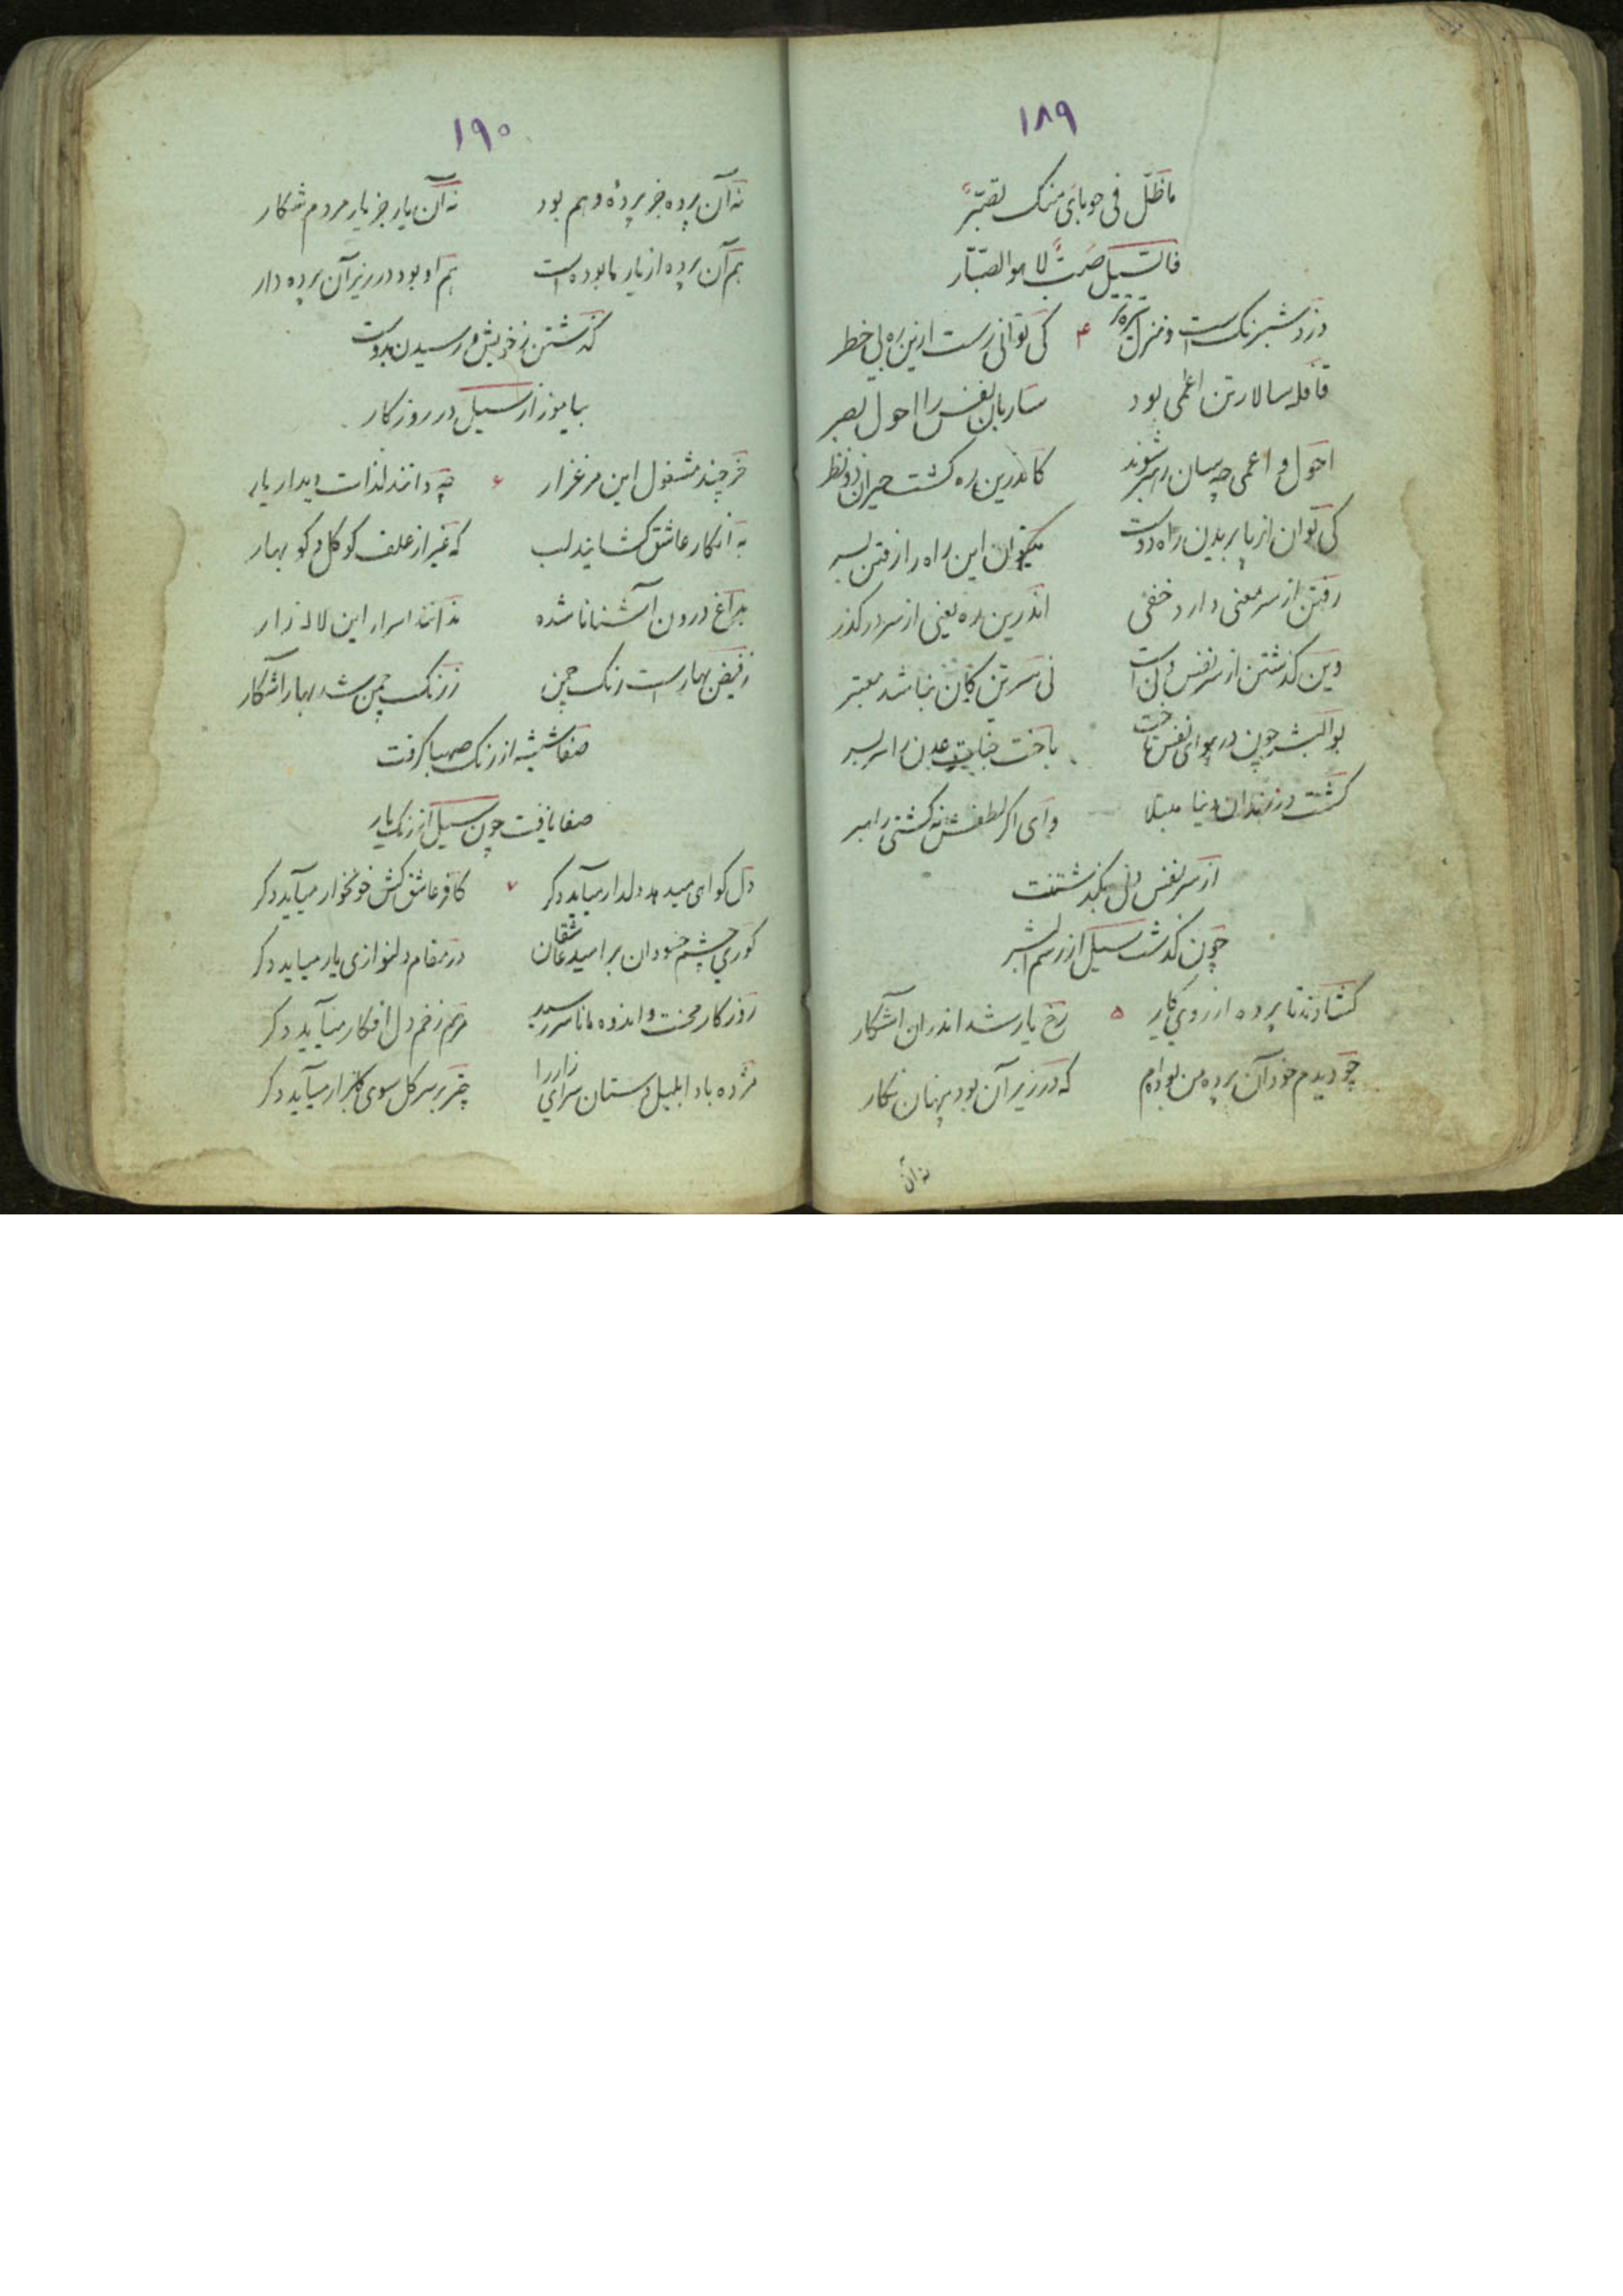 ۱۸۹
ما ظلّ فی حوبائی منک تصبّر
فالسیل صبٌّ لا هو الصبّار
دزد شبرنگ است و منزل تیره‌تر ۴ کی توانی رست ازین ره بی خطر
قافله سالار تن اعمی بود ساربان نفس را احول بصر
احول و اعمی چه سان رهبر شوند کاندرین ره گشت حیران ذو نظر
کی توان از پا بریدن راه دوست میتوان این راه را رفتن بسر
رفتن از سر معنی دارد خفی اندرین ره یعنی از سر درگذر
وین گذشتن از سر نفس دنی است نی سر تن کان نباشد معتبر
بوالبشر چون در هوای نفس تاخت باخت جنات عدن را سربسر
گشت در زندان دنیا مبتلا وای اگر لطفش نه گشتی راهبر
از سر نفس دنی بگذشتنت
چون گذشت سیل از رسم البشر
گشادند تا پرده از روی کار ۵ رخ یار شد اندران آشکار
چو دیدم خود آن پرده من بوده‌ام که در زیر آن بود پنهان نگار
نه آن
۱۹۰
نه آن پرده جز پردهٔ وهم بود نه آن یار جز یار مردم شکار
هم آن پرده از یار ما بوده است هم او بود در زیر آن پرده دار
گذشتن ز خویش و رسیدن بدوست
بیاموز از سیل در روزگار
خر چند مشغول این مرغزار ۶ چه دانند لذات دیدار یار
به انکار عاشق گشایند لب که غیر از علف کو گل و کو بهار
بداغ درون آشنا نا شده ندانند اسرار این لاله زار
ز فیض بهار است رنگ چمن ز رنگ چمن شد بهار آشکار
صفا شیشه از رنگ صهبا گرفت
صفا یافت چون سیل از رنگ یار
دل گواهی میدهد دلدار میآید دگر ۷ کافر عاشق کش خونخوار میآید دگر
کوری چشم حسودان بر امید عاشقان در مقام دلنوازی یار میاید دگر
روزگار محنت و اندوه مانا سر رسید مرهم زخم دل افکار میآید دگر
مژده باد ابلبل دستان سرای زار را چتر بر سر گل سوی گلزار میآید دگر